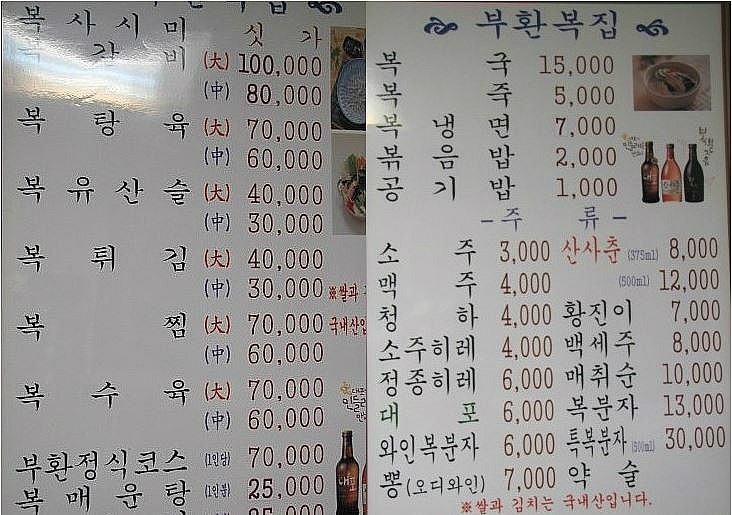 복사시미 싯가
복갈비 (大) 100,000
(中) 80,000
복탕육 (大) 70,000
(中) 60,000
복유산슬 (大) 40,000
(中) 30,000
복튀김 (大) 40,000
(中) 30,000
※쌀과
국내산입
복찜 (大) 70,000
(中) 60,000
복수육 (大) 70,000
(中) 60,000
부환정식코스 (1인당) 70,000
복매운탕 (1인분) 25,000
25,000
부환복집
복국 15,000
복죽 5,000
복냉면 7,000
볶음밥 2,000
공기밥 1,000
- 주류 -
소주 3,000 산사춘 (375ml) 8,000
맥주 4,000 (500ml) 12,000
청하 4,000 황진이 7,000
소주히레 4,000 백세주 8,000
정종히레 6,000 매취순 10,000
대포 6,000 복분자 13,000
와인복분자 6,000 특복분자 (500ml) 30,000
뽕(오디와인) 7,000 약술
※쌀과 김치는 국내산입니다.